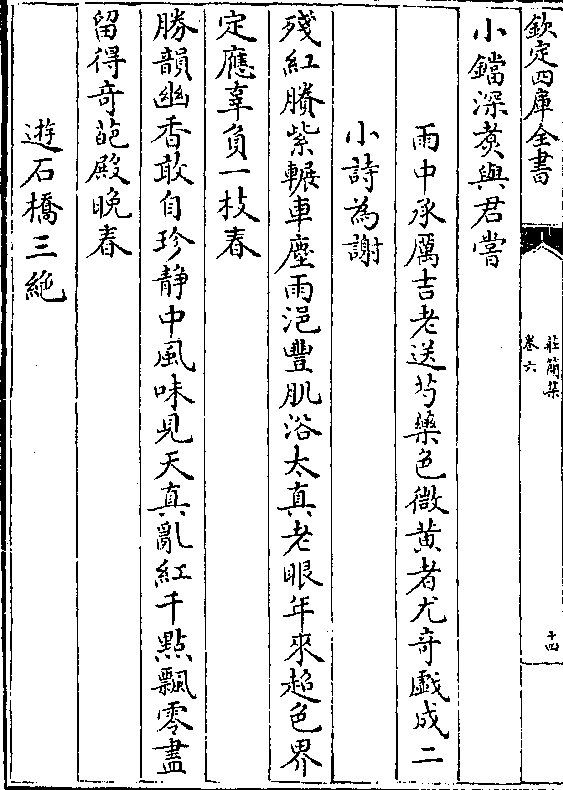 欽定四庫全書
莊簡集
卷六
十四
小鐺深煑與君嘗
雨中承厲吉老送芍藥色微黃者尤奇戯成二
小詩為謝
殘紅賸紫輾車塵雨浥豐肌浴太真老眼年來超色界
定應辜負一枝春
勝韻幽香敢自珍静中風味見天真亂紅千點飄零盡
留得奇葩殿晚春
遊石橋三絶